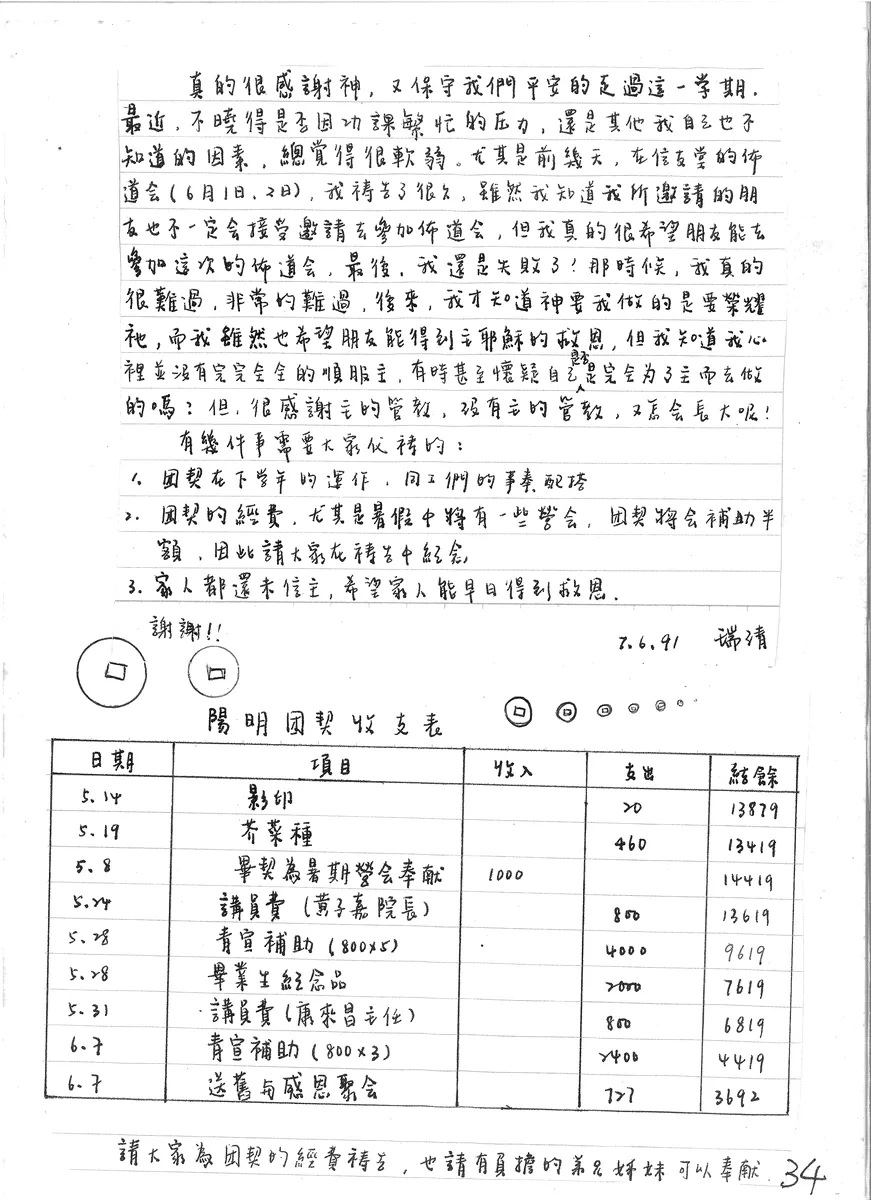 真的很感謝神，又保守我們平安的走過這一學期．
最近，不曉得是否因功課繁忙的压力，還是其他我自己也不
知道的因素，總覺得很軟弱。尤其是前幾天，在信友堂的佈
道会(6月1日、2日)，我禱告了很久，雖然我知道我所邀請的朋
友也不一定会接受邀請去參加佈道会，但我真的很希望朋友能去
參加這次的佈道会，最後，我還是失敗了！那時候，我真的
很難過，非常的難過，後來，我才知道神要我做的是要榮耀
祂，而我雖然也希望朋友能得到主耶穌的救恩，但我知道我心
裡並沒有完完全全的順服主，有時甚至懷疑自己是否是完全为了主而去做
的嗎？但，很感謝主的管教，沒有主的管教，又怎会長大呢！
有幾件事需要大家代禱的：
1、团契在下学年的運作，同工們的事奉配搭
2．团契的經費，尤其是暑假中將有一些營会，团契將会補助半
額，因此請大家在禱告中紀念
3．家人都還未信主，希望家人能早日得到救恩．
謝謝!!
7.6.91 瑞靖
陽明团契收支表
日期 項目 收入 支出 結餘
5.14 影印 20 13879
5.19 芥菜種 460 13419
5.8 畢契為暑期營会奉献 1000 14419
5.24 講員費(黃子嘉院長) 800 13619
5.28 青宣補助(800×5) 4000 9619
5.28 畢業生紀念品 2000 7619
5.31 講員費(康來昌主任) 800 6819
6.7 青宣補助(800×3) 2400 4419
6.7 送舊与感恩聚会 727 3692
請大家為团契的經費禱告，也請有負擔的弟兄姊妹可以奉献． 34